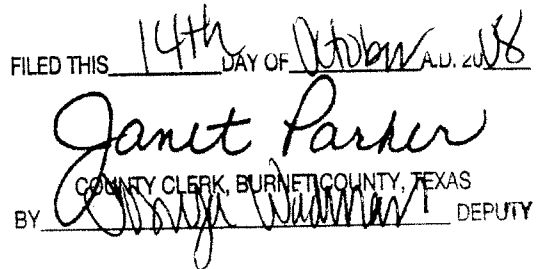 FILED THIS 14th DAY OF October A.D. 2008
Janet Parker
COUNTY CLERK, BURNET COUNTY, TEXAS
BY DEPUTY